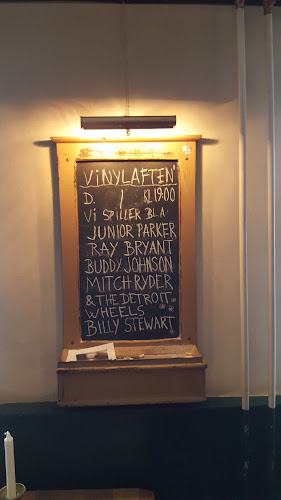 VINYLAFTEN
D. / KL 19.00
Vi SPILLER BL.A
JUNIOR PARKER
RAY BRYANT
BUDDY JOHNSON
MITCH RYDER
& THE DETROIT
WHEELS
BILLY STEWART